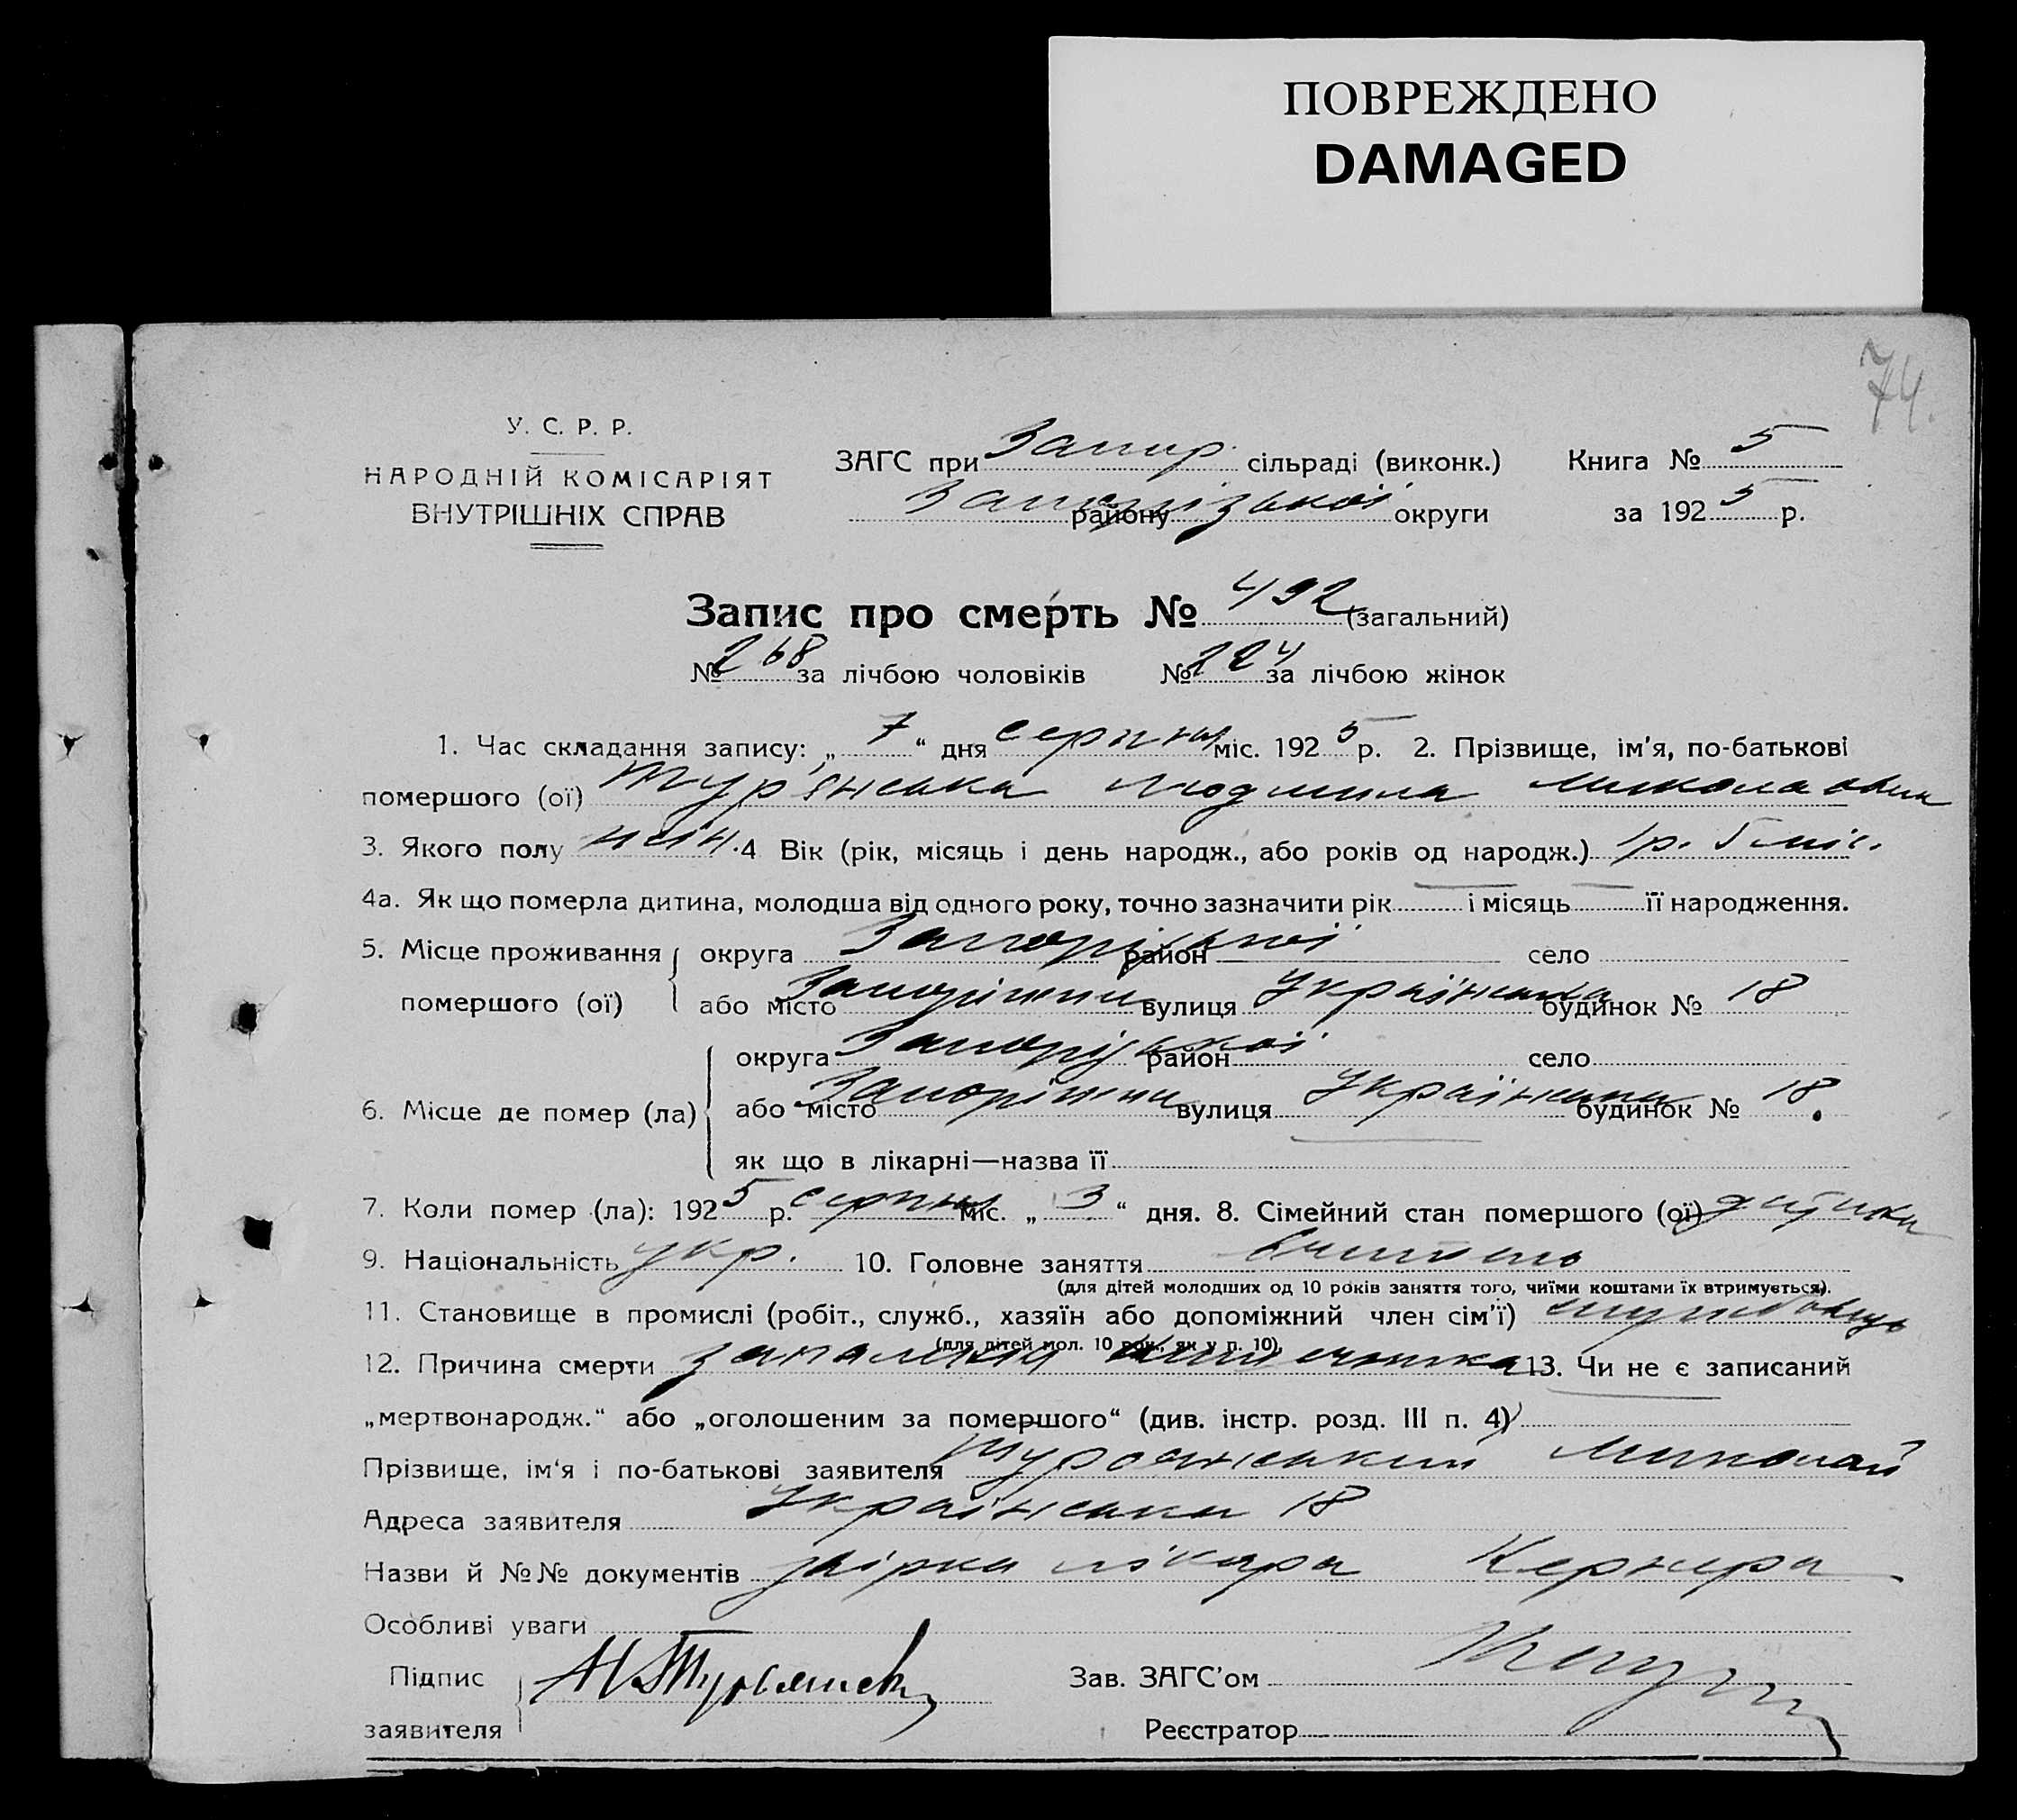 ПОВРЕЖДЕНО
DAMAGED
74.
У. С. Р. Р.
НАРОДНІЙ КОМІСАРІЯТ
ВНУТРІШНІХ СПРАВ
ЗАГС при Запор. сільраді (виконк.) Книга № 5
району Запорізької округи за 1925 р.
Запис про смерть № 492 (загальний)
№ 268 за лічбою чоловіків № 224 за лічбою жінок
1. Час складання запису: „7“ дня серпня міс. 1925 р. 2. Прізвище, ім'я, по-батькові
помершого (ої) Тур'янська Людмила
3. Якого полу жін. 4 Вік (рік, місяць і день народж., або років од народж.) 1 р. 5 міс.
4а. Як що померла дитина, молодша від одного року, точно зазначити рік — і місяць — її народження.
5. Місце проживання помершого (ої) округа Запорізької район село
або місто Запоріжжя вулиця Українська будинок № 18
6. Місце де помер (ла) округа Запорізької район село
або місто Запоріжжя вулиця Українська будинок № 18.
як що в лікарні—назва її —
7. Коли помер (ла): 1925 р. серпня міс. „3“ дня. 8. Сімейний стан помершого (ої) дитина
9. Національність укр. 10. Головне заняття вчитель
(для дітей молодших од 10 років заняття того, чиїми коштами їх втримується).
11. Становище в промислі (робіт., служб., хазяїн або допоміжний член сім'ї) службовець
(для дітей мол. 10 рок., як у п. 10).
12. Причина смерти запалення кишечника 13. Чи не є записаний
„мертвонародж.“ або „оголошеним за помершого“ (див. інстр. розд. III п. 4) —
Прізвище, ім'я і по-батькові заявителя Миколай
Адреса заявителя Українська 18
Назви й №№ документів лікаря Кернера
Особливі уваги
Підпис заявителя
Зав. ЗАГС'ом
Реєстратор